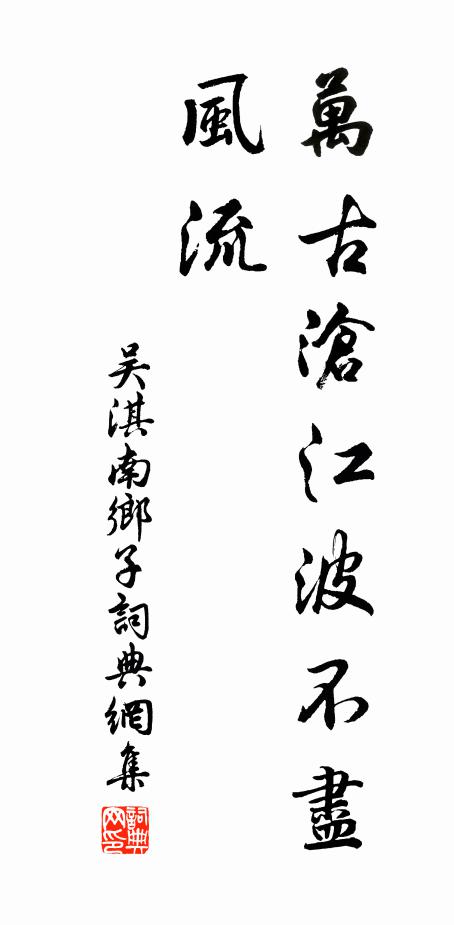 萬古滄江波不盡
風流
吴淇南鄉子詞典網集
詞典网印